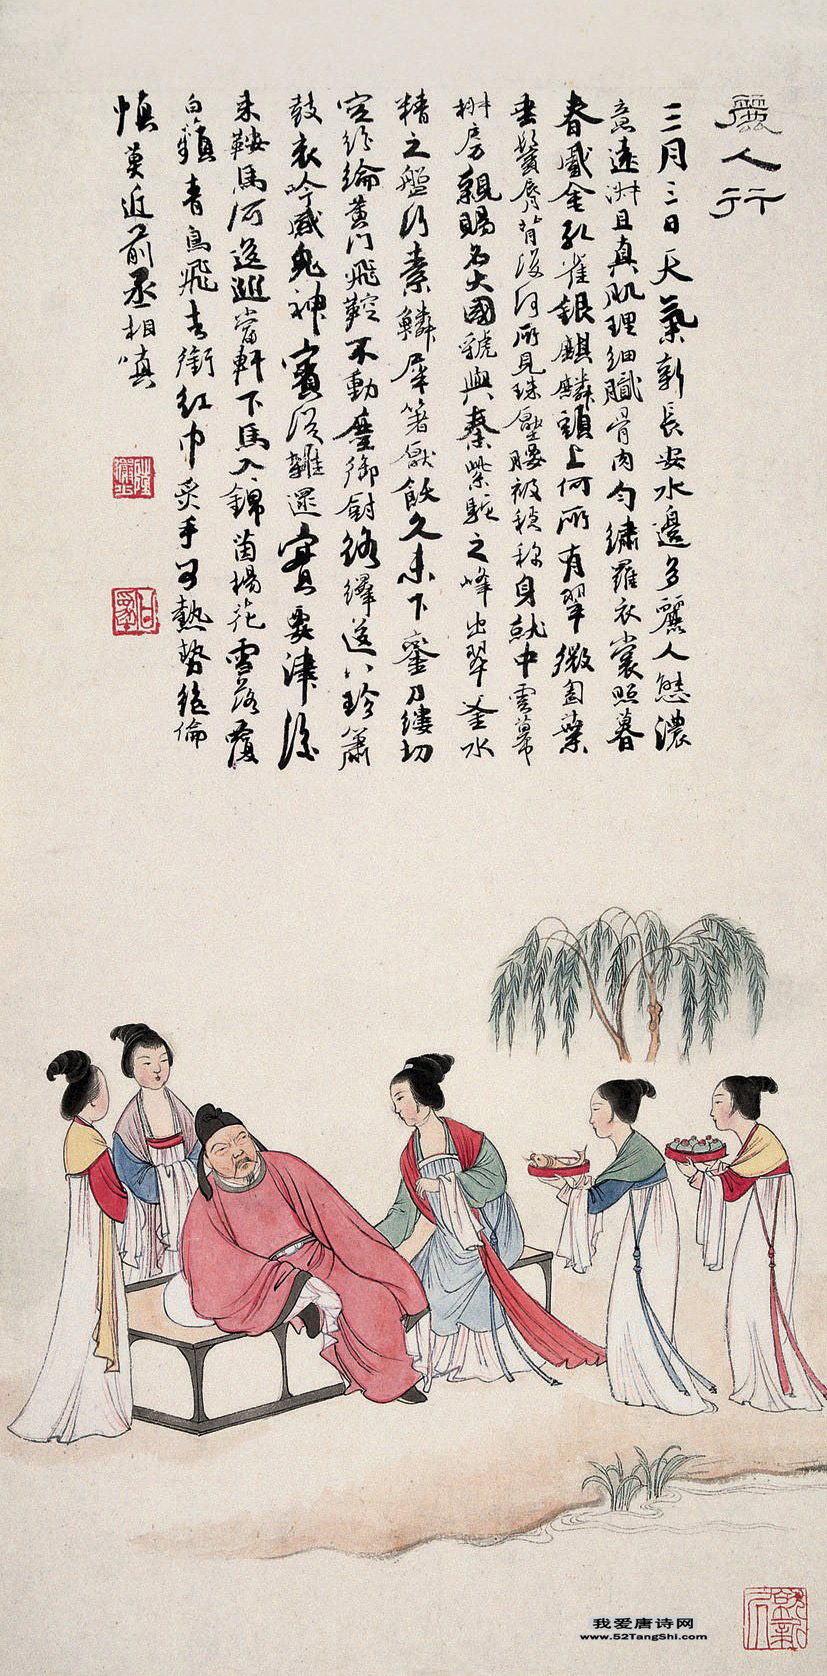 麗人行
三月三日天氣新長安水邊多麗人態濃
意遠淑且真肌理細膩骨肉勻繡羅衣裳照暮
春蹙金孔雀銀麒麟頭上何所有翠微㔩葉
垂鬢唇背後何所見珠壓腰衱穩稱身就中雲幕
椒房親賜名大國虢與秦紫駝之峰出翠釜水
精之盤行素鱗犀箸厭飫久未下鑾刀縷切
空紛綸黃門飛鞚不動塵御廚絡繹送八珍簫
鼓哀吟感鬼神賓從雜遝實要津後
來鞍馬何逡巡當軒下馬入錦茵楊花雪落覆
白蘋青鳥飛去銜紅巾炙手可熱勢絕倫
慎莫近前丞相嗔
我爱唐诗网
www.52TangShi.com